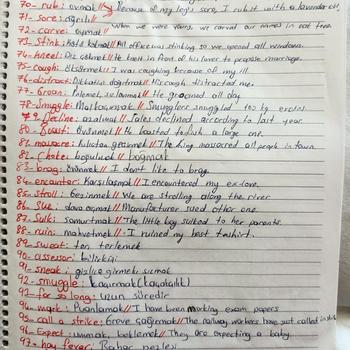 70- rub: ovmak // Because of my leg's sore, I rub it with a lavender oil
71- sore: ağrılı
When we were young, we carved our names in oak tree
72- carve: oymak //
73- stink: kötü kokmak // All office was stinking so we opened all windows.
74- kneel: Diz çökmek // He knelt in front of his lover to propose marriage.
75- cough: öksürmek // I was coughing because of my ill.
76- distract: Dikkatini dağıtmak // His cough distracted me.
77- Groan: inlemek, sızlanmak // He groaned all day
78- Smuggle: Mal kaçırmak // Smugglers smuggled
79- Decline: azalmak // Sales declined according to last year.
80- Boast: övünmek // He boasted to fish a large one.
81- massacre: Katliam yapmak // The king massacred all people in town.
82- Choke: boğulmak // boğmak
83- brag: övünmek // I don't like to brag.
84- encounter: Karşılaşmak // I encountered my ex-love.
85- stroll: Gezinmek // We are strolling along the river
86- Sue: dava açmak // Manufacturer sued other one.
87- Sulk: somurtmak // The little boy sulked to her parents.
88- ruin: mahvetmek // I ruined my best t-shirt.
89- sweat: ter, terlemek
90- assessor: bilirkişi
91- sneak: gizlice girmek, sıvışmak
92- smuggle: kaçırmak (kaçakçılık)
93- for so long: uzun süredir
94- mark: Puanlamak // I have been marking exam papers
95- call a strike: Greve çağırmak // The railway workers have just called a
96- Expect: ummak, beklemek // They are expecting a baby.
97- hay fever: Bahar nezlesi